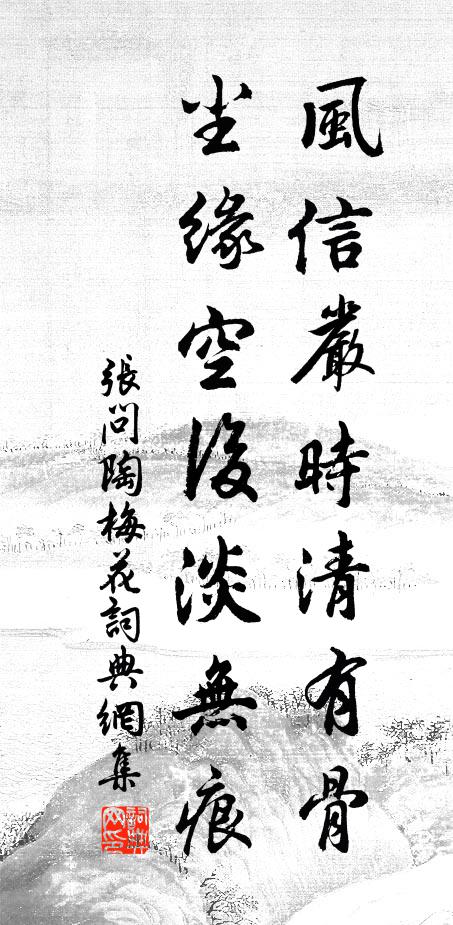 風信嚴時清有骨
尘緣空後淡無痕
張問陶梅花詞典網集